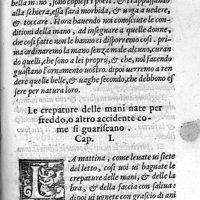 bella mano, sono copiosi i poeti, & trappassando
alla schiera, essa sarà morbida, & uaga a uedere,
& toccare. Hora hauendo noi conosciute le condi-
tioni della mano, ad insegnare a quelle donne,
che così fatte non l'hanno ci disporremo così. pri-
ma ordinaremo la mano senza male alcuno, curan
do quelli, che sono a lei proprij, & che, nol facendo
guastano l'ornamento nostro. dipoi uerremo a ren
dere quelle belle, & uaghe secondo, che debbono es
sere per natura loro.
Le crepature delle mani nate per
freddo, o altro accidente co-
me si guariscano.
Cap. I.
LA mattina, come leuate ui siete
del letto, così uoi ui bagnate le
crepature delle mani, & delle la
bra, & della faccia con saliua:
dipoi ui ugnete con grascio di ani